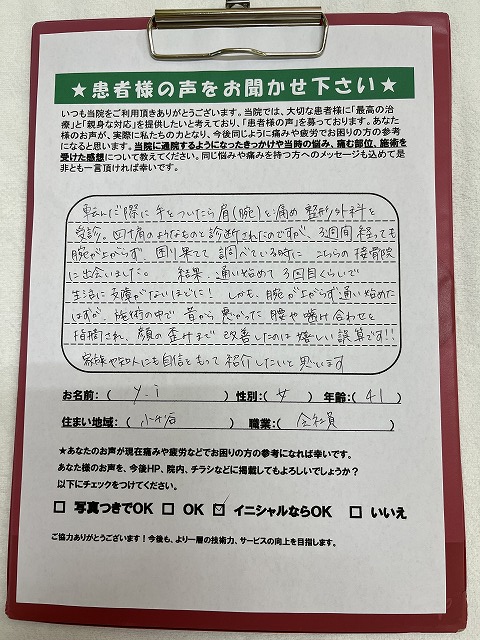 ★患者様の声をお聞かせ下さい★
いつも当院をご利用頂きありがとうございます。当院では、大切な患者様に「最高の治
療」と「親身な対応」を提供したいと考えており、「患者様の声」を募っております。あなた
様のお声が、実際に私たちの力となり、今後同じように痛みや疲労でお困りの方の参考
になると思います。当院に通院するようになったきっかけや当時の悩み、痛む部位、施術を
受けた感想について教えてください。同じ悩みや痛みを持つ方へのメッセージも込めて是
非とも一言頂ければ幸いです。
転んだ際に手をついたら肩(腕)を痛め 整形外科を
受診。四十肩のようなものと診断されたのですが、3週間経っても
腕が上がらず、困り果てて調べている時に こちらの接骨院
に出会いました。 結果、通い始めて3回目くらいで
生活に支障がないほどに! しかも、腕が上がらず通い始めた
はずが、施術の中で昔から悪かった腰や噛け合わせと
指摘され、顔の歪みまで改善したのは嬉しい誤算です!!
家族や知人にも自信をもって紹介したいと思います
お名前:( Y.I ) 性別:( 女 ) 年齢:( 41 )
住まい地域:( 小ヶ谷 ) 職業:( 会社員 )
★あなたのお声が現在痛みや疲労などでお困りの方の参考になれば幸いです。
あなた様のお声を、今後HP、院内、チラシなどに掲載してもよろしいでしょうか?
以下にチェックをつけてください。
□ 写真つきでOK □ OK ☑ イニシャルならOK □ いいえ
ご協力ありがとうございます!今後も、より一層の技術力、サービスの向上を目指します。